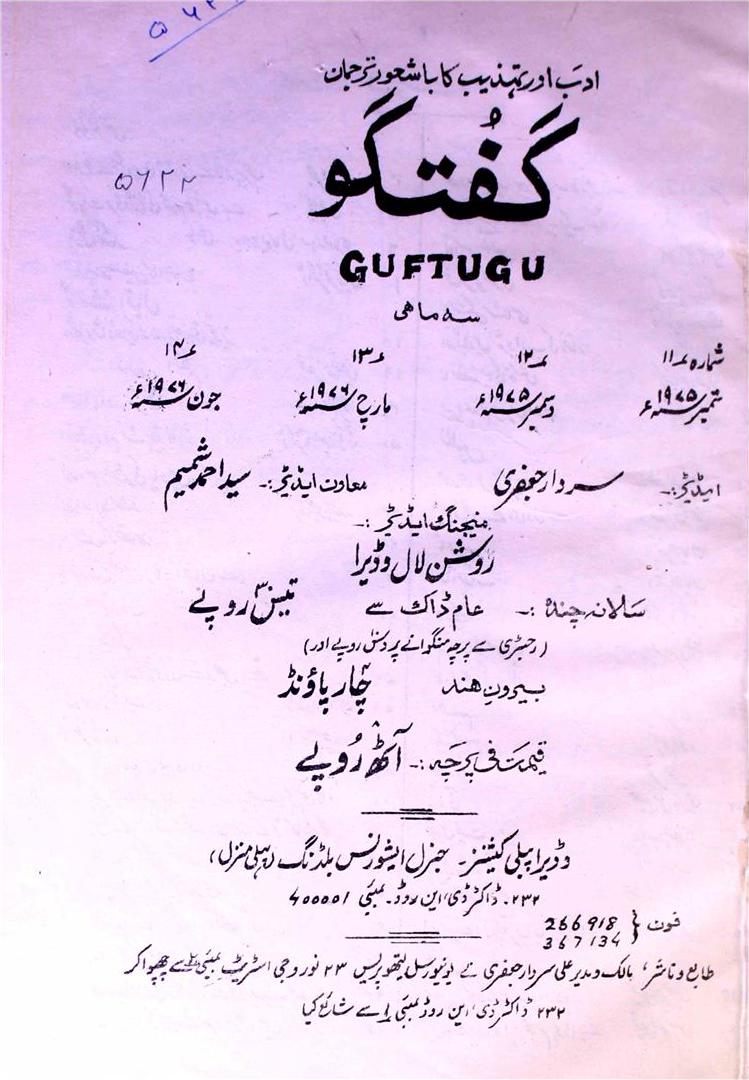 ادب اور تہذیب کا باشعور ترجمان
گُفتگو
۵۶۲۲
GUFTUGU
سہ ماہی
شمارہ ؎۱۱ ؎۱۲ ؎۱۳ ؎۱۴
ستمبر ۱۹۷۵ء دسمبر ۱۹۷۵ء مارچ ۱۹۷۶ء جون ۱۹۷۶ء
ایڈیٹر:۔ سردار جعفری معاون ایڈیٹر:۔ سید احمد شمیم
منیجنگ ایڈیٹر :۔
روشن لال وڈیرا
سالانہ چندہ :۔ عام ڈاک سے تیس روپے
(رجسٹری سے پرچہ منگوانے پر دس روپے اور)
بیرون ہند چار پاؤنڈ
قیمت فی پرچہ :۔ آٹھ روپے
وڈیرا پبلی کیشنز۔ جنرل ایشورنس بلڈنگ (پہلی منزل)
۲۳۲۔ ڈاکٹر ڈی این روڈ۔ بمبئی 400001
فون { 266918
367134
طابع و ناشر، مالک و مدیر علی سردار جعفری نے یونیورسل لیتھو پریس ۲۳ نوروجی اسٹریٹ بمبئی سے چھپوا کر
۲۳۲ ڈاکٹر ڈی این روڈ بمبئی ۱ سے شائع کیا